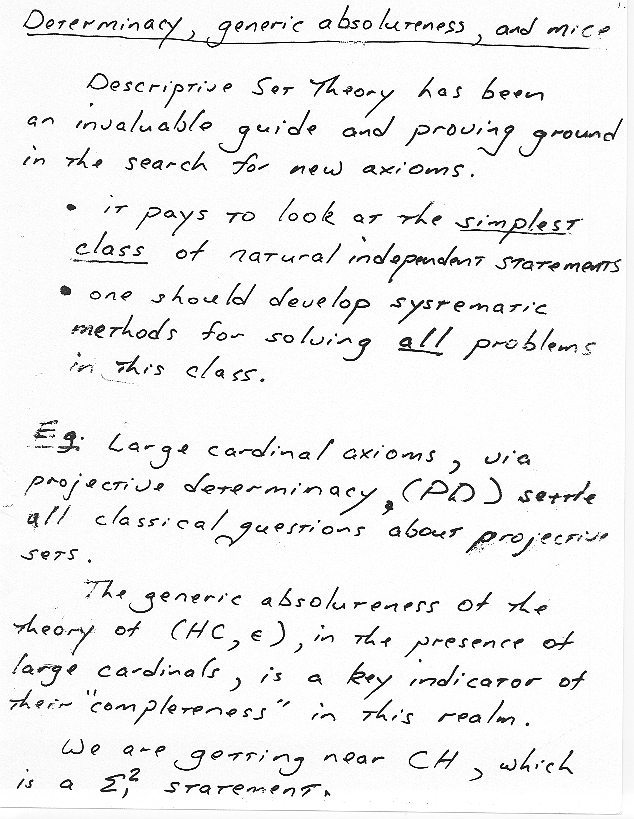 Determinacy, generic absoluteness, and mice
Descriptive Set Theory has been
an invaluable guide and proving ground
in the search for new axioms.
• it pays to look at the simplest
class of natural independent statements
• one should develop systematic
methods for solving all problems
in this class.
Eg. Large cardinal axioms, via
projective determinacy, (PD) settle
all classical questions about projective
sets.
The generic absoluteness of the
theory of (HC, ∈), in the presence of
large cardinals, is a key indicator of
their "completeness" in this realm.
We are getting near CH, which
is a Σ₁² statement.